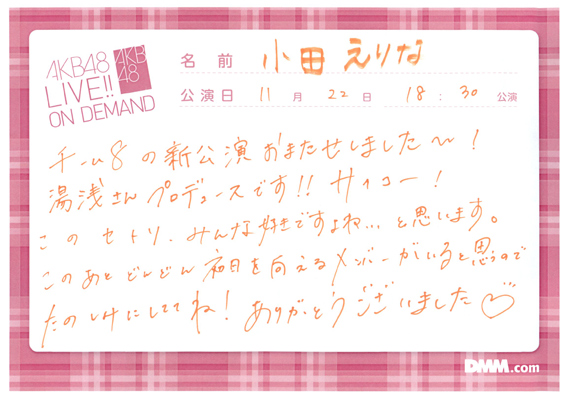 AKB48
LIVE!!
ON DEMAND
AKB
48
名前 小田えりな
公演日 11月22日 18:30公演
チーム8の新公演おまたせしました〜!
湯浅さんプロデュースです!!サイコー!
このセトリ、みんな好きですよね...と思います。
このあとどんどん初日を向えるメンバーがいると思うので
たのしみにしててね!ありがとうございました♡
DMM.com